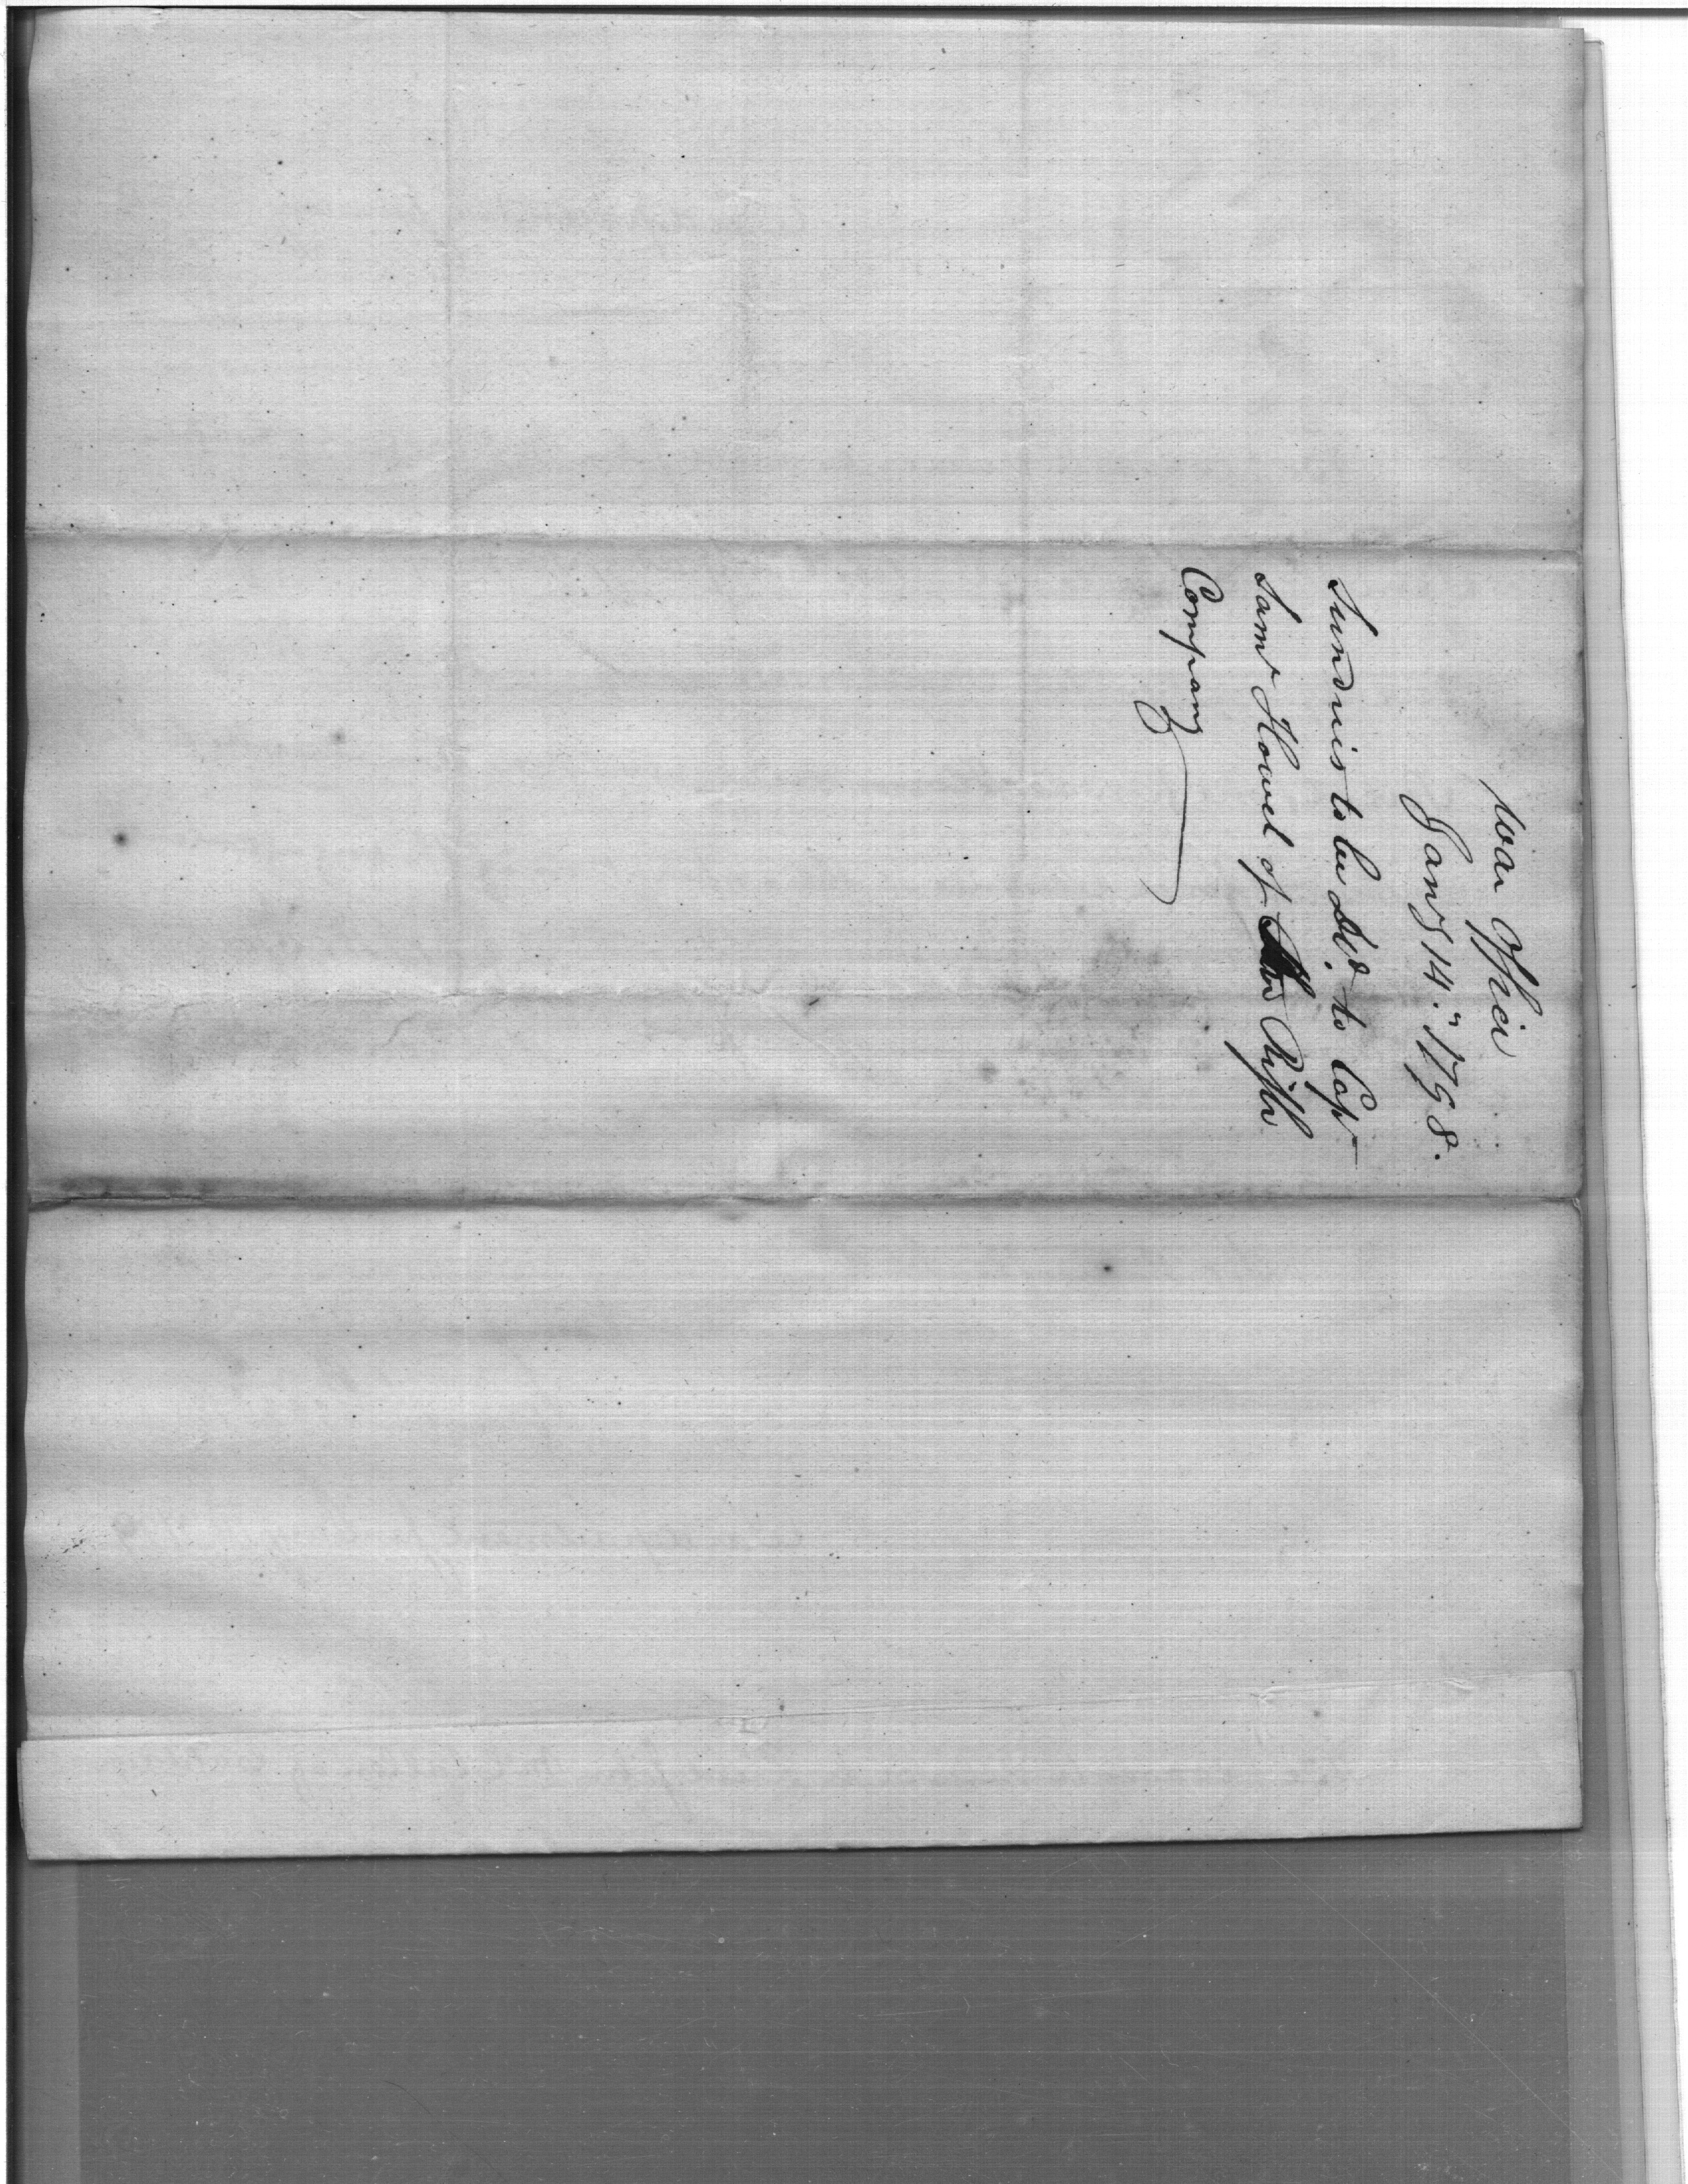 War Office
Jany 14th 1798.
Sundries to be dd. to Capt
Saml Howel of Rifle
Company